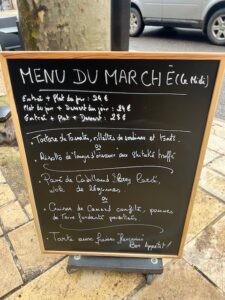 MENU DU MARCHÉ (le Midi)
Entrée + Plat du jour : 24 €
Plat du jour + Dessert du jour : 24 €
Entrée + Plat + Dessert : 28 €
Tartare de Tomates, rillettes de sardines et
OR
Risotto de langue d'oiseau aux Shitaké truffé
Pavé de Cabillaud Sauce
de légumes
OR
Cuisse de Canard confite, pommes
de Terre fondante persillées
Tarte aux fraises
Bon appétit !